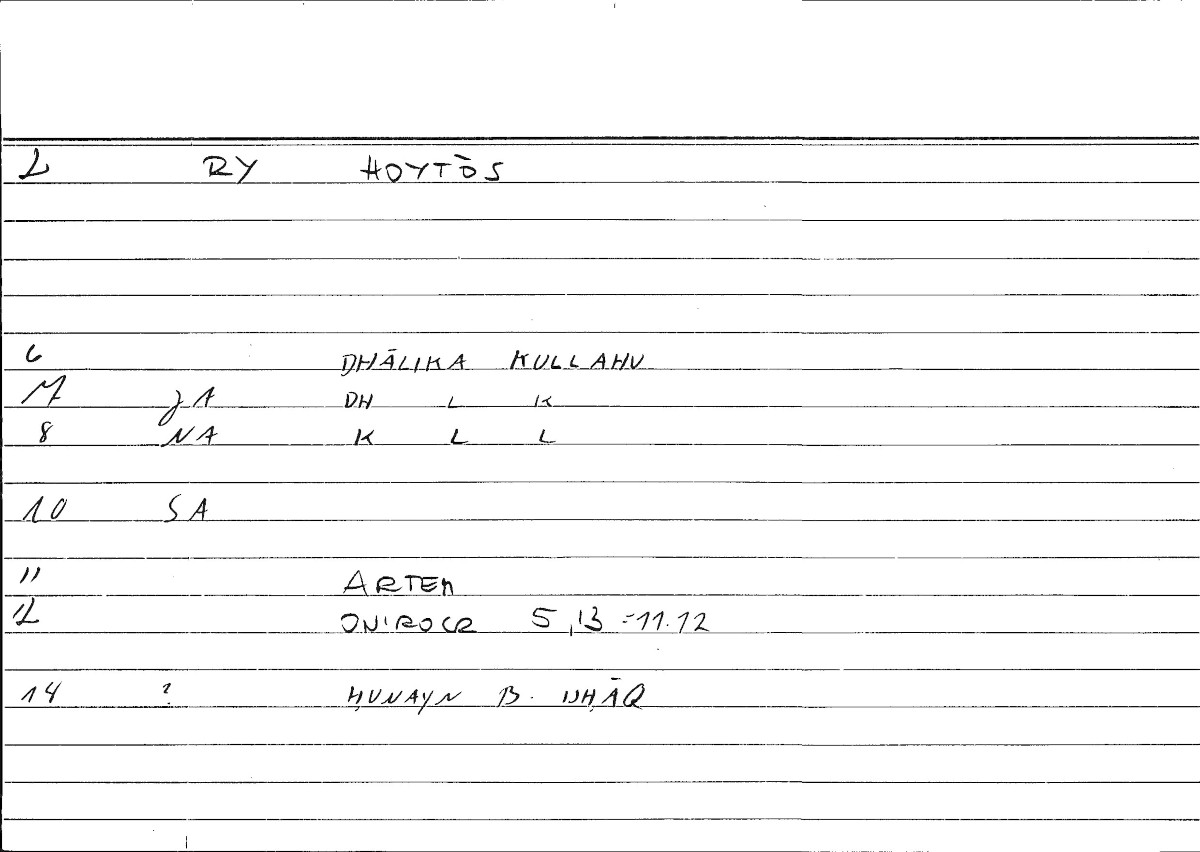 2 RY HOYTŌS
6 DHĀLIKA KULLAHU
7 JA DH L K
8 NA K L L
10 SA
11 ARTEM
12 ONIROCR 5,13 -11.12
14 ? ḤUNAYN B. ISḤĀQ